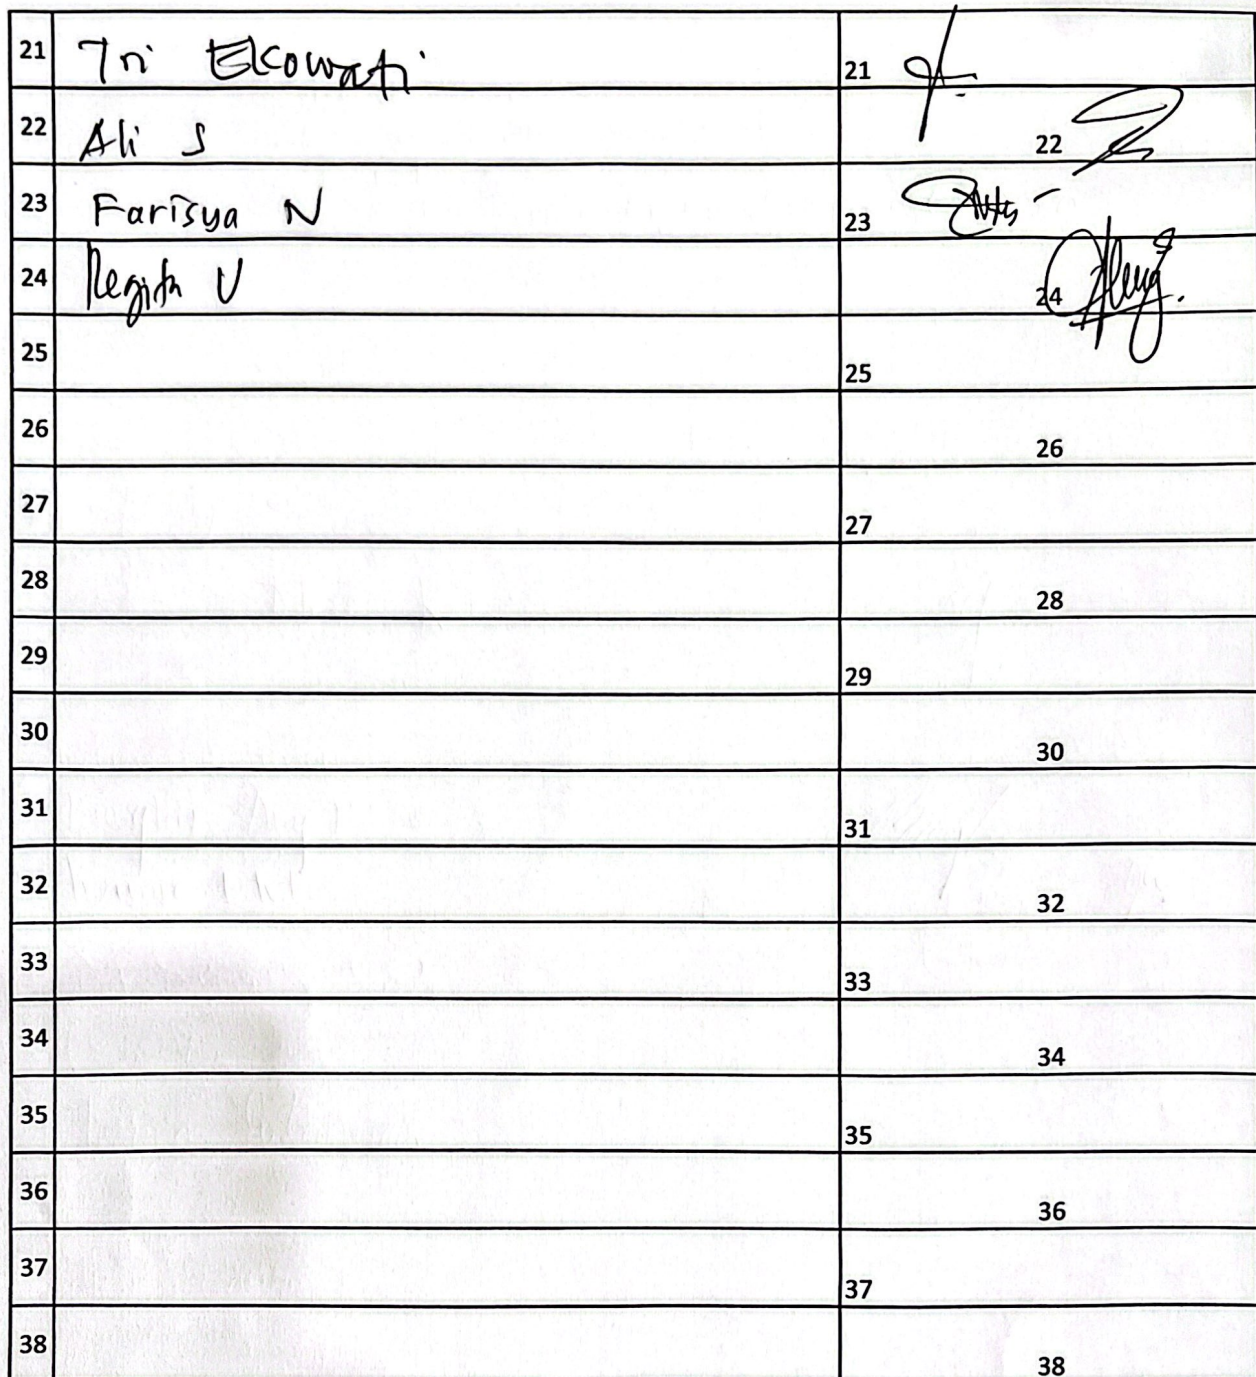 21 Tri Ekowati 21
22 Ali S 22
23 Farisya N 23
24 Regita V 24
25 25
26 26
27 27
28 28
29 29
30 30
31 31
32 32
33 33
34 34
35 35
36 36
37 37
38 38